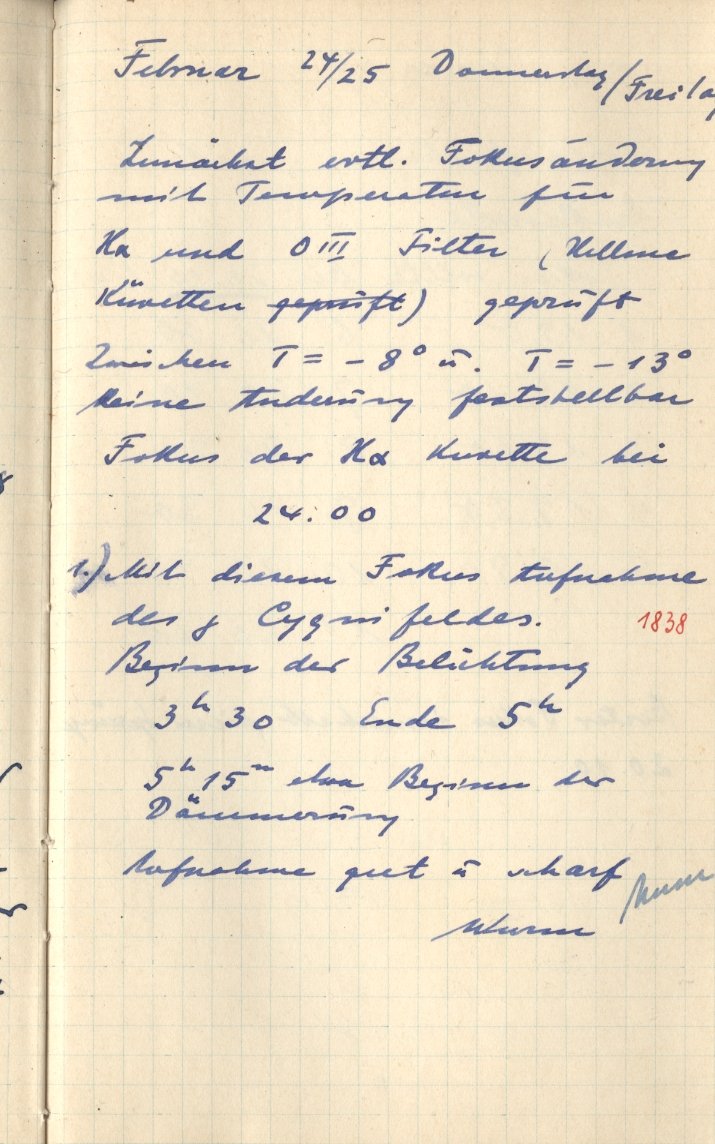 Februar 24/25 Donnerstag/Freitag
Zunächst evtl. Fokusänderung
mit Temperatur für
Hα und O III Filter (
Küvetten geprüft) geprüft
Zwischen T = - 8° u. T = - 13°
keine Änderung feststellbar
Fokus der Hα Kuvette bei
24.00
1.) Mit diesem Fokus Aufnahme
des γ Cygni feldes. 1838
Beginn der Belichtung
3ʰ 30 Ende 5ʰ
5ʰ 15ᵐ etwa Beginn der
Dämmerung
Aufnahme gut u scharf
Wurm